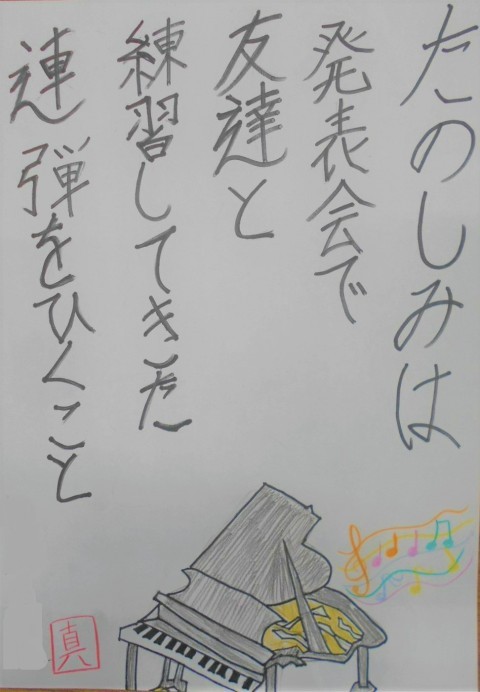 たのしみは
発表会で
友達と
練習してきた
連弾をひくこと
真